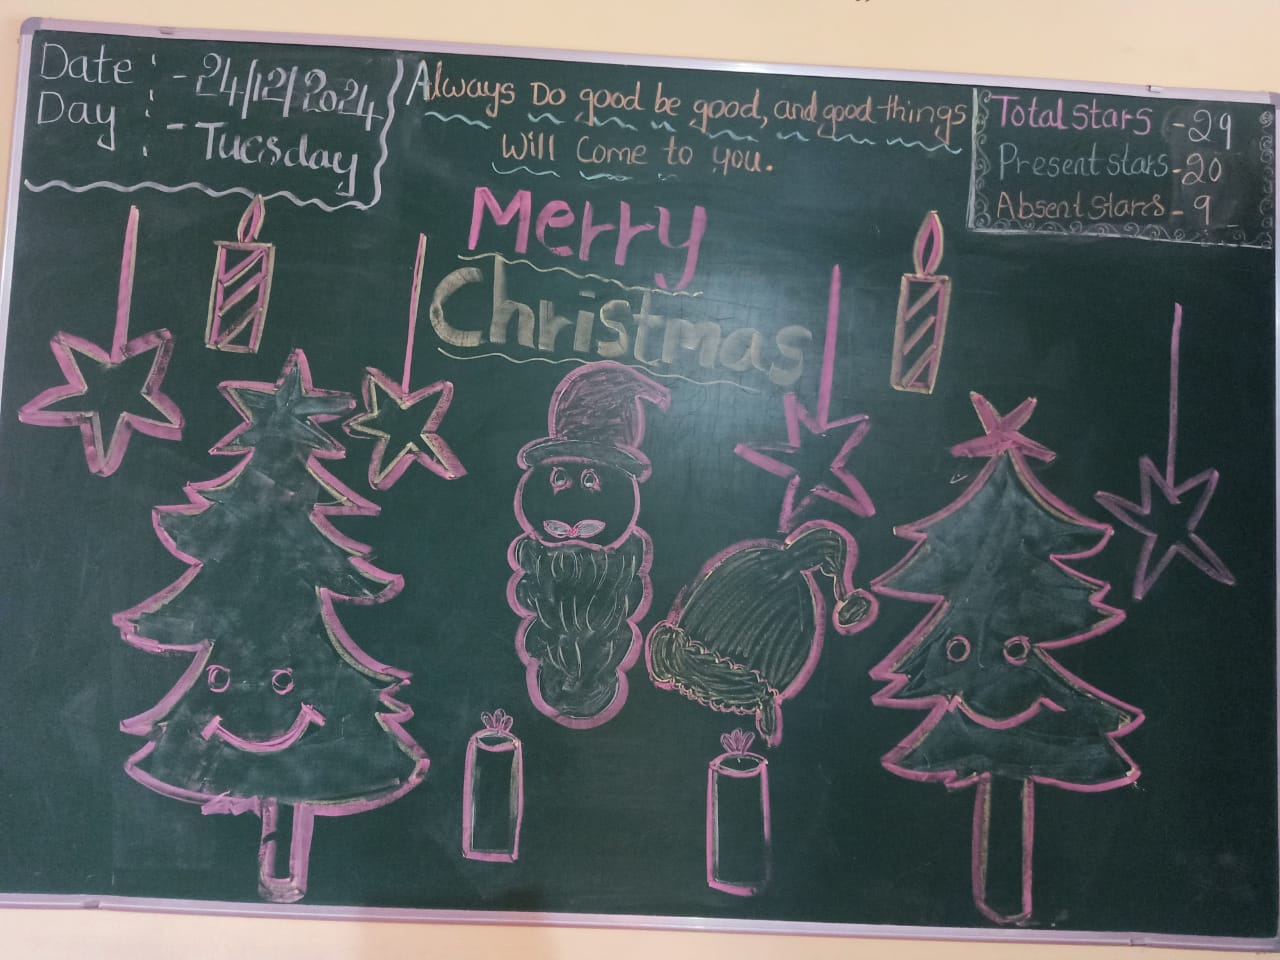 Date : - 24/12/2024
Day : - Tuesday
Always Do good be good, and good things
Will Come to you.
Total stars - 29
Present stars - 20
Absent stars - 9
Merry
Christmas